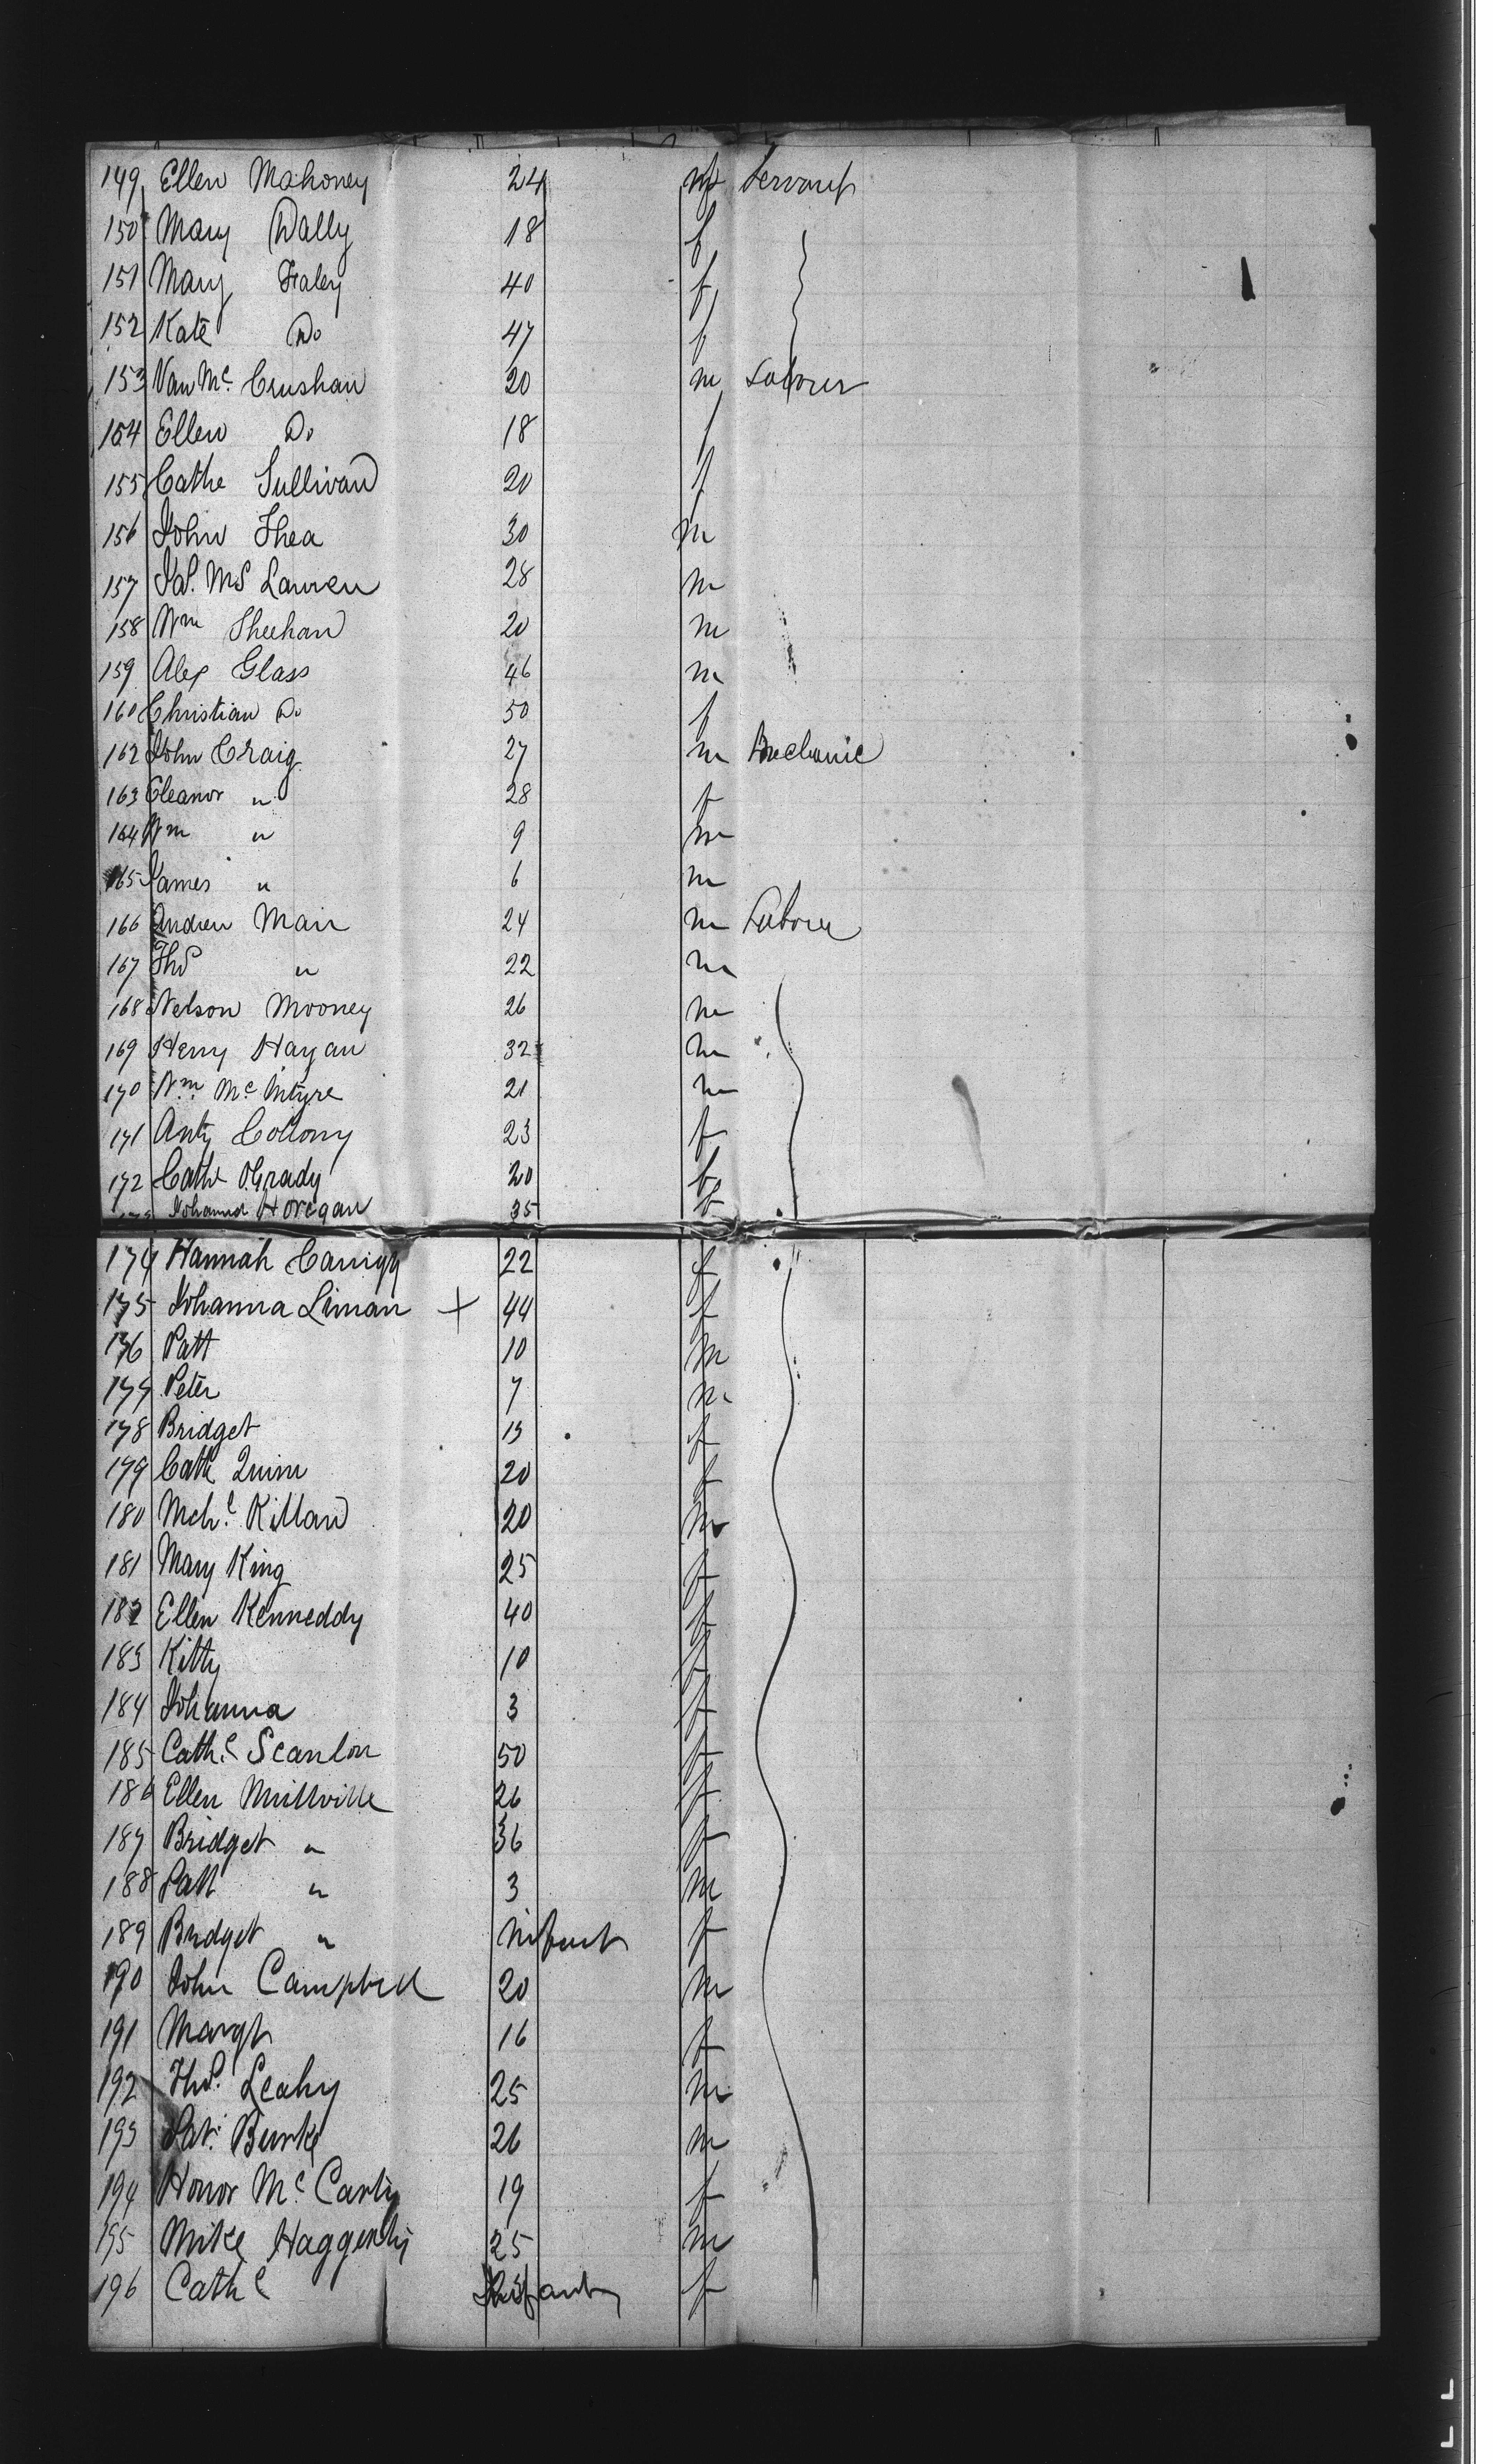 149 Ellen Mahoney 24 f Servant
150 Mary Dally 18 f
151 Mary Haley 40 f
152 Kate Do 47 f
153 Mc. Crushan 20 m Labourer
154 Ellen Do 18 f
155 Cathe Sullivan 20 f
156 John Shea 30 m
157 28 m
158 Wm Sheehan 20 m
159 Alex Glass 46 m
160 Christian Do 50 f
162 John Craig 27 m Mechanic
163 Eleanor " 28 f
164 Wm " 9 m
165 James " 6 m
166 Andrew Mair 24 m Labourer
167 Thos " 22 m
168 Nelson Mooney 26 m
169 Henry Hagan 32 m
170 Wm. Mc Intyre 21 m
171 Anty 23 f
172 Cathe O'Grady 20 f
173 Johanna Horegan 35 f
174 Hannah 22 f
175 Johanna Liman + 44 f
176 Patt 10 m
177 Peter 7 m
178 Bridget f
179 Cathe Quinn 20 f
180 Mchl. Killand 20 m
181 Mary King 25 f
182 Ellen Kenneddy 40 f
183 Kitty 10 f
184 Johanna 3 f
185 Cathe Scanlon 50 f
186 Ellen Mullville 26 f
187 Bridget " 36 f
188 Patt " 3 m
189 Bridget " infant f
190 John Campbell 20 m
191 Margt 16 f
192 Thos. Leahy 25 m
193 Pat. Burke 26 m
194 Honor Mc. Carty 19 f
195 Mike Haggerty 25 m
196 Cathe Infant f